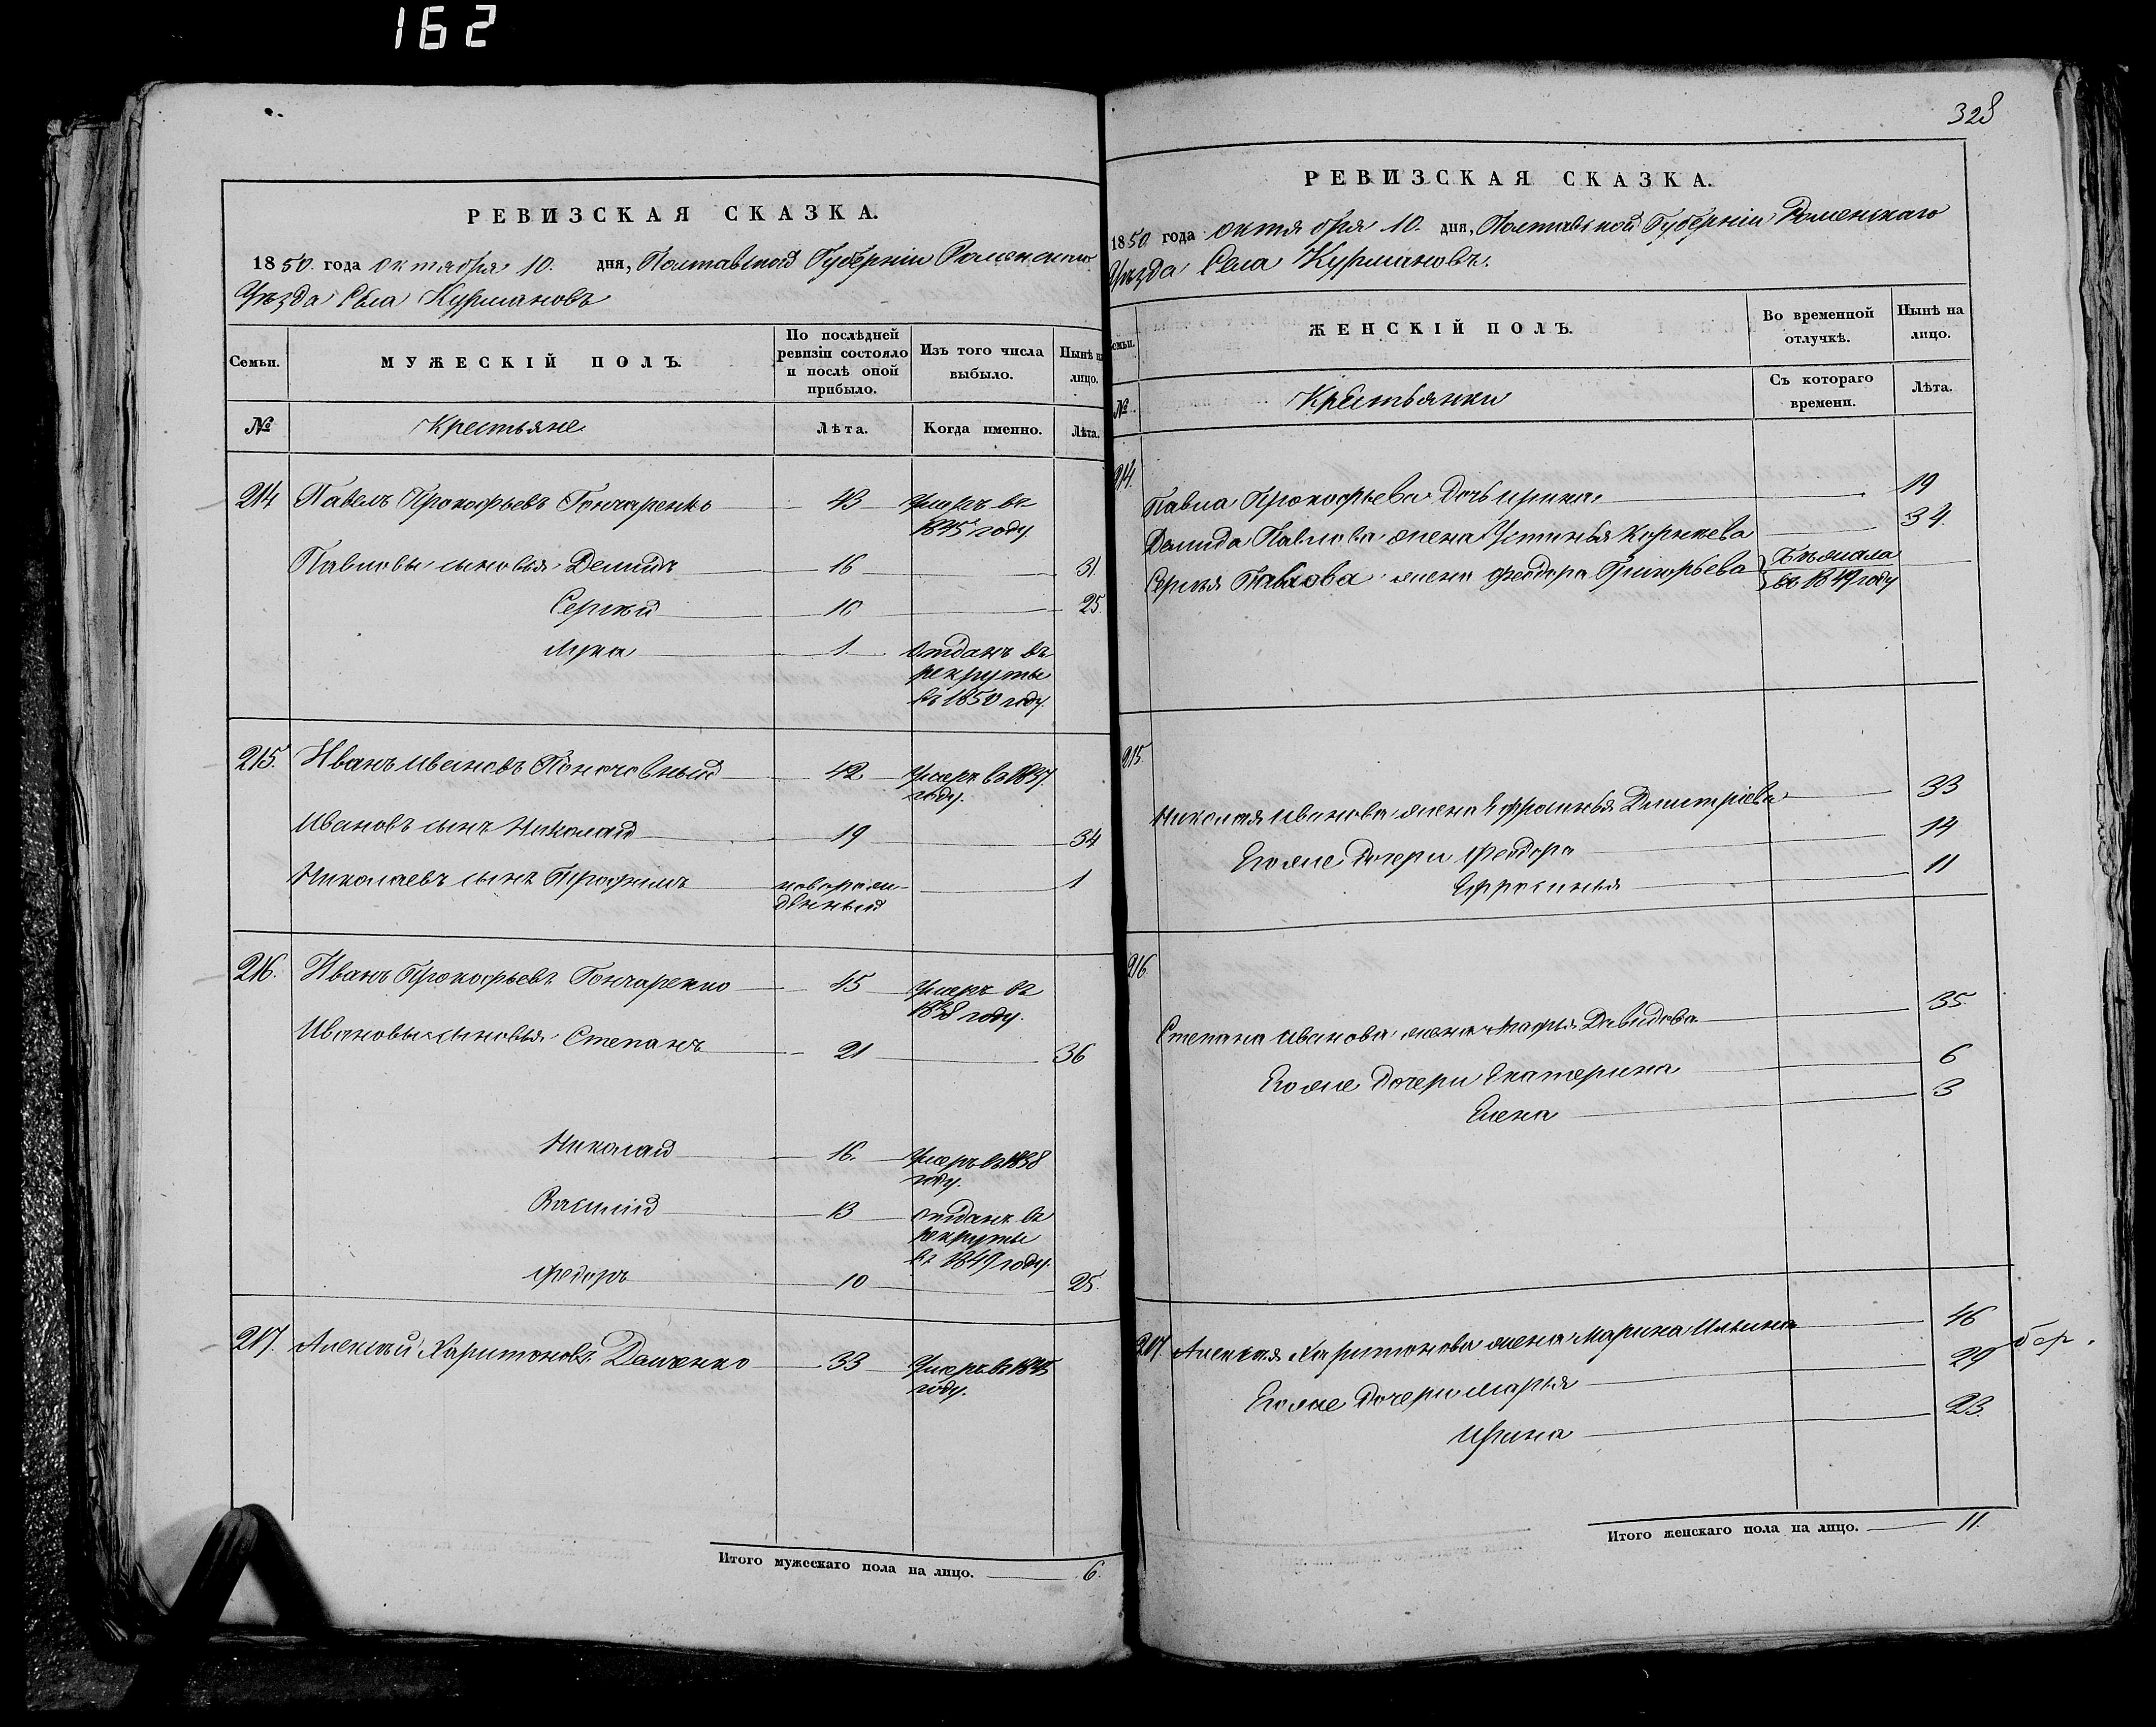 162
РЕВИЗСКАЯ СКАЗКА.
1850 года октября 10. дня, Полтавской Губерніи Роменскаго
Уѣзда Села Курмановъ
Семьи.
МУЖЕСКІЙ ПОЛЪ.
По послѣдней ревизіи состояло и послѣ оной прибыло.
Изъ того числа выбыло.
Нынѣ на лицо.
№
Крестьяне
Лѣта.
Когда именно.
Лѣта.
214 Павелъ Прокофьевъ Гончаренко 43 умеръ въ
1845 году
Павловы сыновья Демидъ 16 31.
Сергѣй 10 25.
Лука 1 отданъ въ
рекруты
въ 1850 году.
215. Иванъ Ивановъ 42 умеръ въ 1837
году.
Ивановъ сынъ Николай 19 34
Николаевъ сынъ Трофимъ новорож- 1
денный
216. Иванъ Прокофьевъ Гончаренко 45 умеръ въ
1838 году.
Ивановы сыновья Степанъ 21 36
Николай 16. умеръ въ 1838
году.
Василій 13 отданъ въ
рекруты
въ 1849 году.
Федоръ 10 25.
217. Алексѣй Харитоновъ 33 умеръ въ 1845
году.
Итого мужескаго пола на лицо. 6.
328
РЕВИЗСКАЯ СКАЗКА.
1850 года октября 10. дня, Полтавской Губерніи Роменскаго
Уѣзда Села Курмановъ.
Семьи.
ЖЕНСКІЙ ПОЛЪ.
Во временной отлучкѣ.
Нынѣ на лицо.
№
Крестьянки
Съ котораго времени.
Лѣта.
214.
Павла Прокофьева дочь Ирина 19
Демида Павлова жена Устинья Корнѣева 34.
Сергѣя Павлова жена Феодора Григорьева Бѣжала
въ 1849 году
215.
Николая Иванова жена Ефросинья Дмитріева 33
Его же дочери Феодора 14
Ефросинья 11
216.
Степана Иванова жена Агафья Давидова 35.
Его же дочери Екатерина 6
Елена 3
217. Алексѣя Харитонова жена Марина Ильина 46
Его же дочери Марья 29 бер.
Ирина 23.
Итого женскаго пола на лицо. 11.